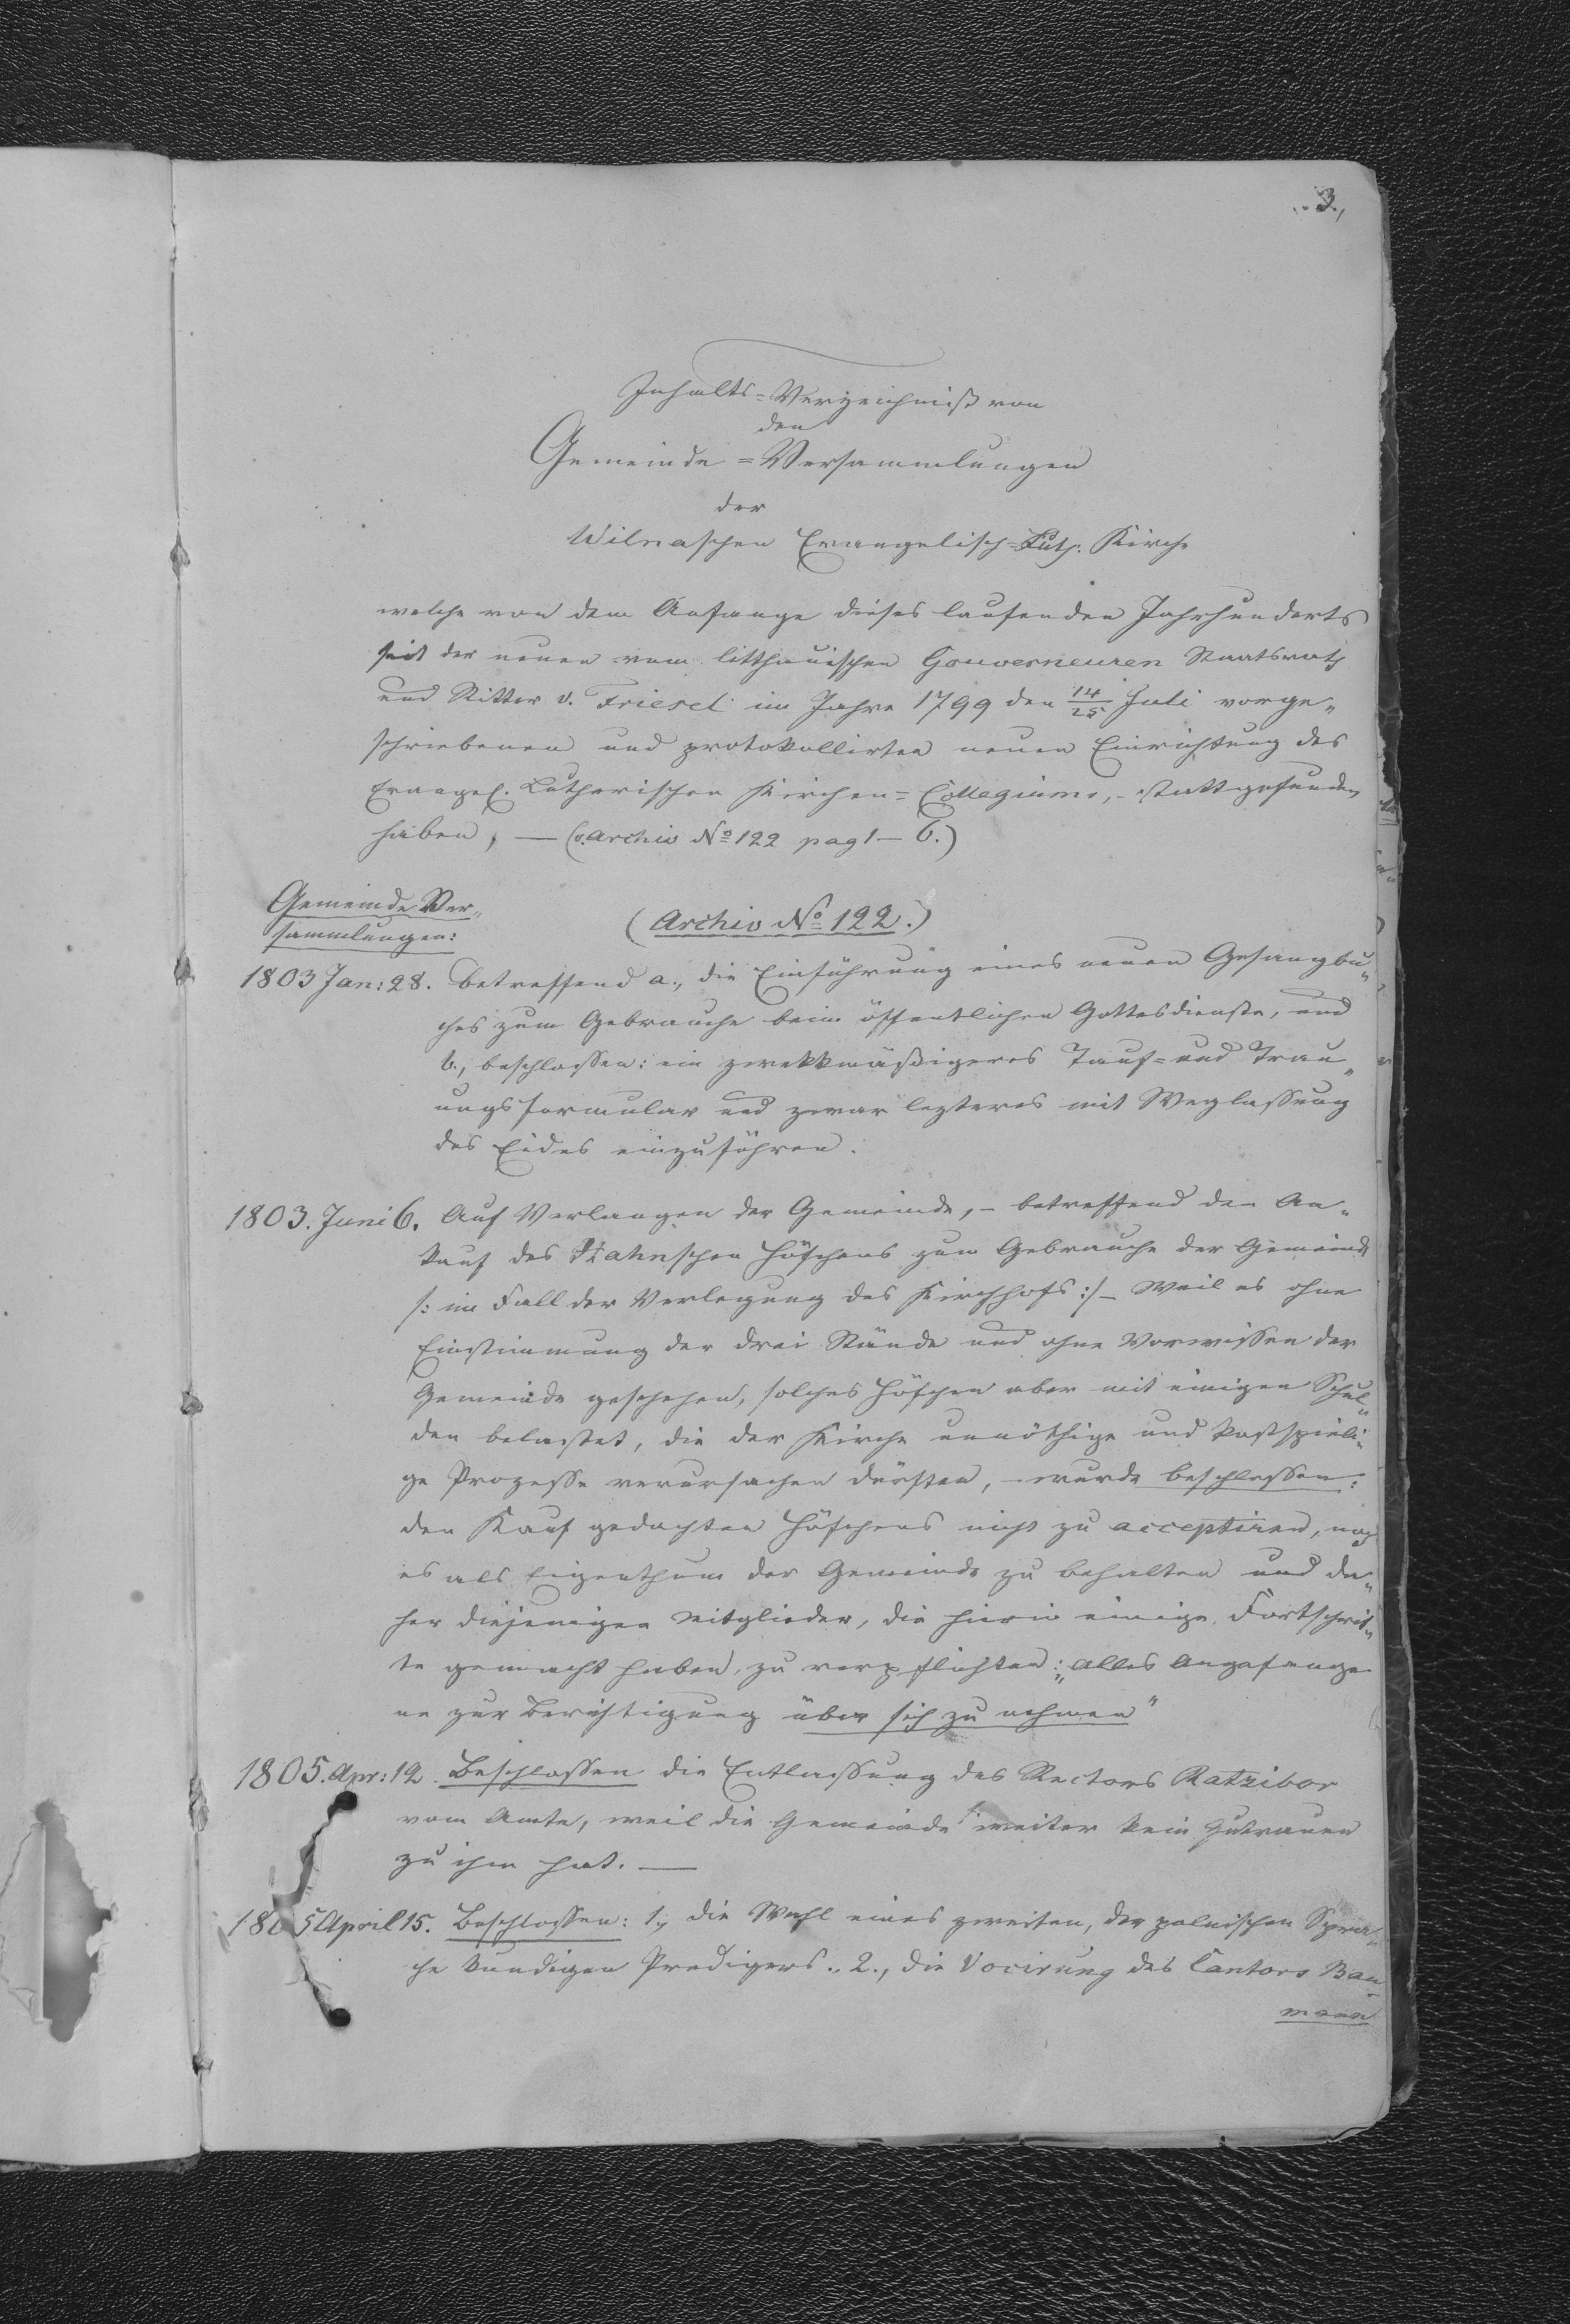 3.,
Inhalts=Verzeichniß von
den
Gemeinde=Versammlungen
der
Wilnaschen Evangelisch=Luth. Kirche
welche von dem Anfange dieses laufenden Jahrhunderts
seit der neuen vom litthauischen Gouverneuren Staatsrath
und Ritter v. Friesel im Jahre 1799 den 14/25 Juli vorge„
schriebenen und protokollirten neuen Einrichtung des
Evangel. Lutherischen Kirchen=Collegiums, - stattgefunden
haben, — (v. Archiv No 122 pag 1 — 6.)
Gemeinde Ver„
sammlungen:
(Archiv No 122.)
1803 Jan: 28. betreffend a., die Einführung eines neuen Gesangbu„
ches zum Gebrauche beim öffentlichen Gottesdienste, und
b., beschlossen: ein zwekkmäßigeres Tauf= und Trau„
ungsformular und zwar lezteres mit Weglassung
des Eides einzuführen.
1803. Juni 6. Auf Verlangen der Gemeinde, - betreffend den An„
kauf des Hahnschen Höfchens zum Gebrauche der Gemeinde
/: im Fall der Verlegung des Kirchhofs :/ - Weil es ohne
Einstimmung der drei Stände und ohne Vorwissen der
Gemeinde geschehen, solches Höfchen aber mit einigen Schul„
den belastet, die der Kirche unnöthige und kostspieli„
ge Prozesse verursachen dürften, - wurde beschlossen:
den Kauf gedachten Höfchens nicht zu acceptiren, noch
es als Eigenthum der Gemeinde zu behalten und da„
her diejenigen Mitglieder, die hierin einige Fortschrit„
te gemacht haben, zu verpflichten: „alles Angefange
ne zur Berichtigung über sich zu nehmen"
1805. Apr: 12. Beschlossen die Entlassung des Rectors Ratzibor
vom Amte, weil die Gemeinde weiter kein Zutrauen
zu ihm hat. —
1805 April 15. Beschlossen: 1., die Wahl eines zweiten, der polnischen Spra„
che kundigen Predigers. 2., die Vocirung des Cantors Bau-
mann